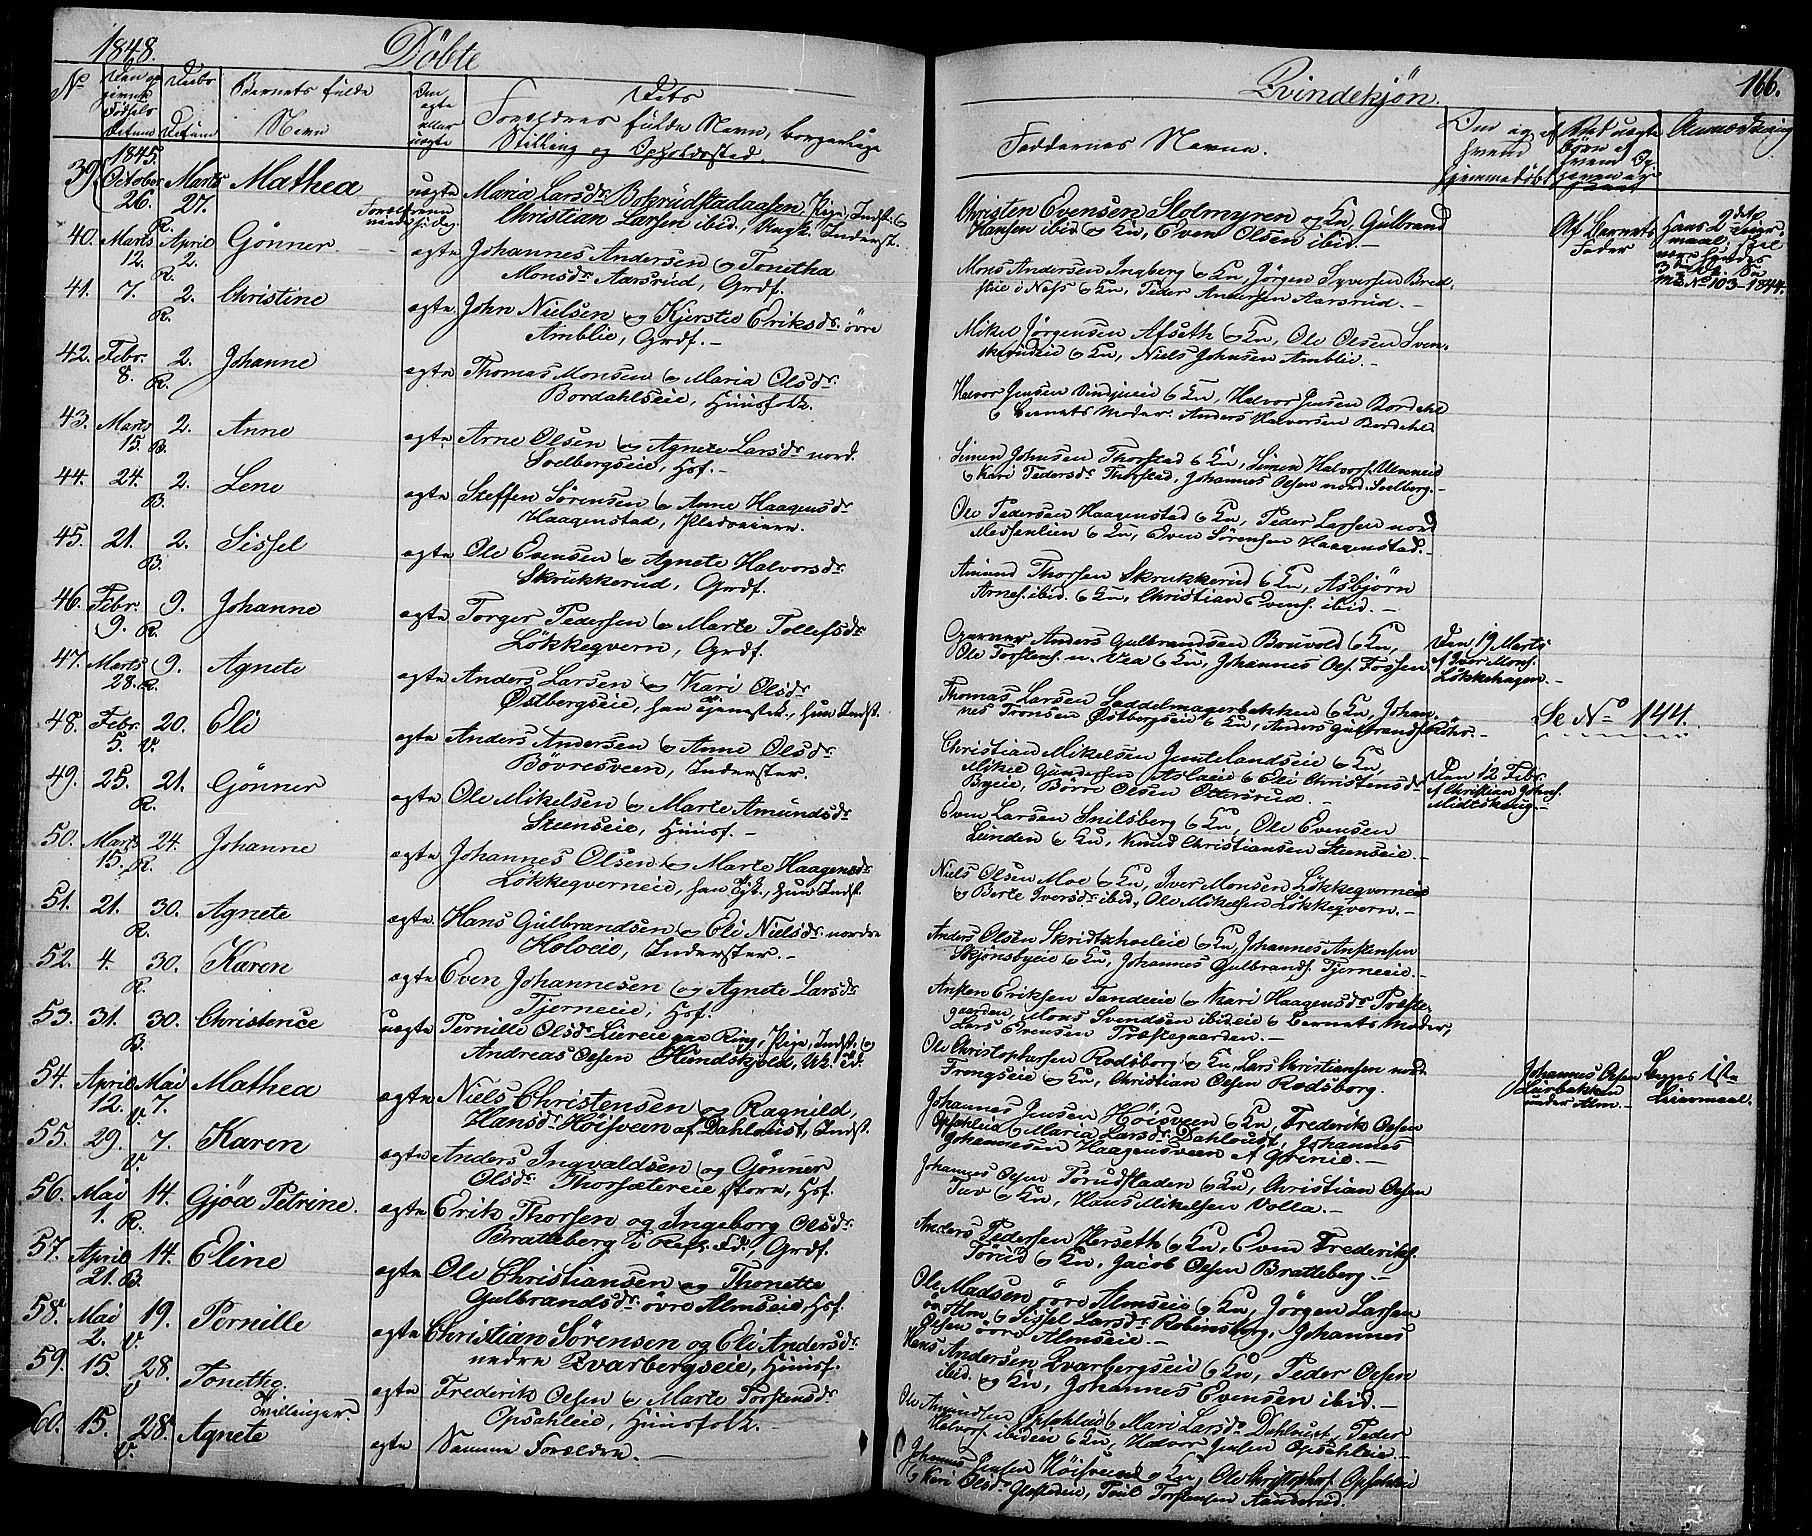 1848. Döbte
Qvindekjön. 166.
No Daabs Barnets fulde Om Dets
Fødsels ægte Forældres fulde Navn, borgerlige
Datum Datum Navn eller uægte Stilling og Opholdssted.
Faddernes Navne. Om og af hvem hjemmedøbt Anmærkning
39. 1845. October 26. Marts 27. R. Mathea uægte Maria Larsdr. Pige, Indst. &
Christian Larsen ibid., Ungk. Inderst.
Christen Evensen Stolmyren og Kn, Gulbrand
Hansen ibid og Kn, Even Olsen ibid.-
Af Barnets Fader
No 103-1844.
40. Marts 12. April 2. R. Gønner ægte Johannes Andersen & Tonetha
Monsdr. Aarsrud, Grdf.
Mons Andersen Ingberg & Kn, Jørgen Syversen
i Næss & Kn, Peder Andersen Aarsrud.-
41. 7. 2. R. Christine ægte John Nielsen & Kjersti Eriksdr. övre
Amblie, Grdf.-
Mikel Jørgensen Afseth & Kn, Ole Olsen
& Kn, Niels Johnsen Amblie.-
42. Febr. 8. 2. R. Johanne ægte Thomas Monsen & Maria Olsdr.
Bordahlseie, Huusfolk.
Halvor Jensen & Kn, Halvor Jensen Bordahl
& Barnets Moder. Anders Halvorsen Bordahl.
43. Marts 15. 2. B. Anne ægte Arne Olsen & Agnete Larsdr. nord.
Soelbergseie, Hsf.-
Simen Johnsen Thorstad & Kn, Simen Halvors.
& Kari Pedersdr. Thorstad, Johannes Olsen nord. Soelberg.-
44. 24. 2. B. Lene ægte Steffen Sørensen & Anne Haagensdr.
Haagenstad,
Ole Pedersen Haagenstad & Kn, Peder Larsen nord
Messenlien & Kn, Even Sørensen Haagenstad.-
45. 21. 2. B. Sissel ægte Ole Evensen & Agnete Halvorsdr.
Skrukkerud, Grdf.
Amund Thorsen Skrukkerud & Kn, Asbjörn
Arnes. ibid. & Kn, Christian Evens. ibid.-
46. Febr. 9. 9. R. Johanne ægte Torger Pedersen & Marte Tollefsdr.
Lökkeqvern, Grdf.
Anders Gulbrandsen Bouvold & Kn,
Ole Torstens. n. Vea & Kn, Johannes Ols. Frössen.
Den 19 Marts af Iver Mons. Løkkehagen.-
47. Marts 28. 9. R. Agnete ægte Anders Larsen & Kari Olsdr.
Østbergseie, han Tjenestek., hun Indst.
Thomas Larsen Saddelmagerbakken & Kn, Johannes
Tronsen Østbergseie & Kn, Anders Gulbrands.
Se No 144.
48. Febr. 5. 20. V. Eli ægte Anders Andersen & Anne Olsdr.
Bövresveen, Inderster.
Christian Mikelsen Juntelandseie & Kn,
Mikel Gundersen Aslaeie & Eli Christensdr.
Byeie, Börre Olsen Ottersrud.-
Den 12 Febr. af Christian Johns. Midtskoug.-
49. 25. 21. R. Gønner ægte Ole Mikelsen & Marte Amundsdr.
Steenseie, Huusf.-
Even Larsen Smilsberg & Kn, Ole Evensen
Lunden & Kn, Knud Christiansen Steenseie.-
50. Marts 15. 24. R. Johanne ægte Johannes Olsen & Marte Haagensdr.
Lökkeqverneie, han Tjst., hun Indst.
Niels Olsen Moe & Kn, Iver Monsen Lökkeqverneie
& Berte Iversdr. ibid., Ole Mikelsen Lökkeqvern.-
51. 21. 30. R. Agnete ægte Hans Gulbrandsen & Eli Nielsdr. nordre
Holveie, Inderster.-
Anders Olsen & Kn, Johannes Anstensen
Skjönsbyeie & Kn, Johannes Gulbrands. Tjerneeie.-
52. 4. 30. R. Karen ægte Even Johannesen & Agnete Larsdr.
Tjerneeie, Hsf.
Ansten Eriksen & Kari Haagensdr. Præstegaarden,
Mons Svendsen ibid.eie & Barnets Moder,
Lars Evensen Præstegaarden.-
53. 31. 30. B. Christence uægte Pernille Olsdr. Lureie paa Ring, Pige, Indst. &
Andreas Olsen Hundskjold, Uk.
Ole Christophersen Rodsborg & Kn, Lars Christiansen nord.
Frengseie & Kn, Christian Olsen Rodsborg.
Johannes Olsen Lurbakken under Alm.-
Begges 1ste Leiermaal.
54. April 12. Mai 7. V. Mathea ægte Niels Christensen og Ragnild
Hansdr. Höisveen af Dahlqvist, Indst.
Johannes Jensen Höisveen & Kn, Frederik Olsen
Opsahleie & Maria Larsdr. Dahlqvist, Johannes
Johannesen Haagensveen af Grinie.-
55. 29. 7. V. Karen ægte Anders Ingvaldsen & Gønner
Olsdr. Thorsætereie store, Hsf.
Johannes Olsen Törudsladen & Kn, Christian Olsen
Tuv & Kn, Hans Mikelsen Volla.-
56. Mai 1. 14. R. Gjøa Petrine. ægte Erik Thorsen og Ingeborg Olsdr.
Bratteberg i Fd., Grdf.
Anders Pedersen Herseth & Kn, Even Frederiks.
Törud & Kn, Jacob Olsen Bratteberg.-
57. April 21. 14. B. Eline ægte Ole Christiansen og Thonette
Gulbrandsdr. övre Almseie, Hsf.
Ole Madsen övre Almseie & Kn, Jörgen Larsen
ö. Alm & Sissel Larsdr. Robinsborg, Johannes
Olsen övre Almseie.-
58. Mai 2. 19. V. Pernille ægte Christian Sørensen og Eli Andersdr.
nedre Qvarbergseie, Huusf.
Hans Andersen Qvarbergseie & Kn, Peder Olsen
ibid. & Kn, Johannes Evensen ibid.-
59. 15. 28. V. Tonetha Tvillinger. ægte Frederik Olsen & Marte Torstensdr.
Opsahleie, Huusfolk.-
Ole Amundsen Opsahleie & Mari Larsdr. Dahlqvist, Peder
Halvors. ibideie & Kn, Halvor Jensen Opsahleie.-
60. 15. 28. V. Agnete ægte Samme Forældre.-
Johannes Jensen Höisveen & Kn, Ole Christophers. Opsahleie
& Kari Olsdr. Poul Torstensen Aanderud.